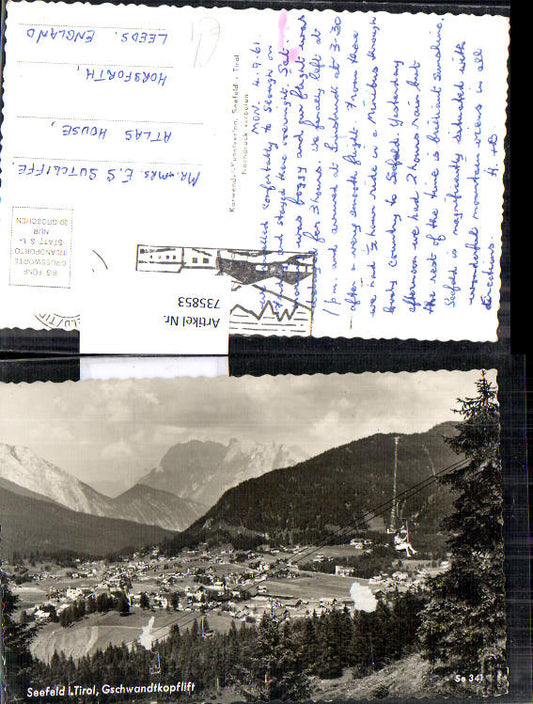 MON. 4.9.61.
travelled comfortably to Slough on
and stayed there overnight. Sat.
was foggy and our flight was
for 3 hours. We finally left at
1 pm. and arrived at Innsbruck at 3-30
after a very smooth flight. From there
we had ½ hour ride in a Minibus through
lovely country to Seefeld. Yesterday
afternoon we had 2 hours rain but
the rest of the time is brilliant sunshine.
Seefeld is magnificently situated with
wonderful mountain views in all
directions.
Karwendel-Kunstverlag, Seefeld i. Tirol
Nachdruck verboten
BIS FÜNF
GRUSSWORTE
INLANDPORTO
STATT S 1.-
NUR
30 GROSCHEN
MR. & MRS. E. S. SUTCLIFFE.
ATLAS HOUSE,
HORSFORTH,
LEEDS. ENGLAND
Artikel Nr.
7358553
Seefeld i.Tirol, Gschwandtkopflift
Se 341